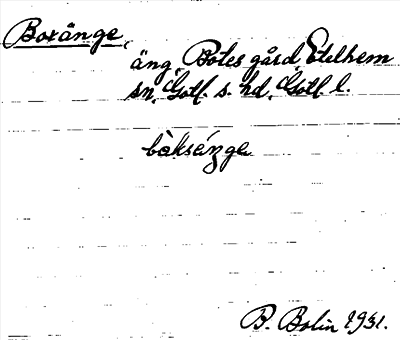 Boxänge,
äng, Botes gård, Etelhem
sn, Gotl. s. hd, Gotl. l.
bàksénge
B. Bolin 1931.